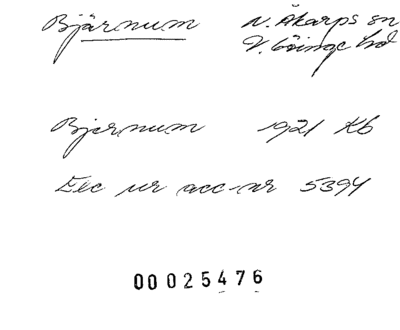 Bjärnum N. Åkarps sn
V. Göinge hd
Bjernum 1921 Kb
Exc ur acc-nr 5394
00025476